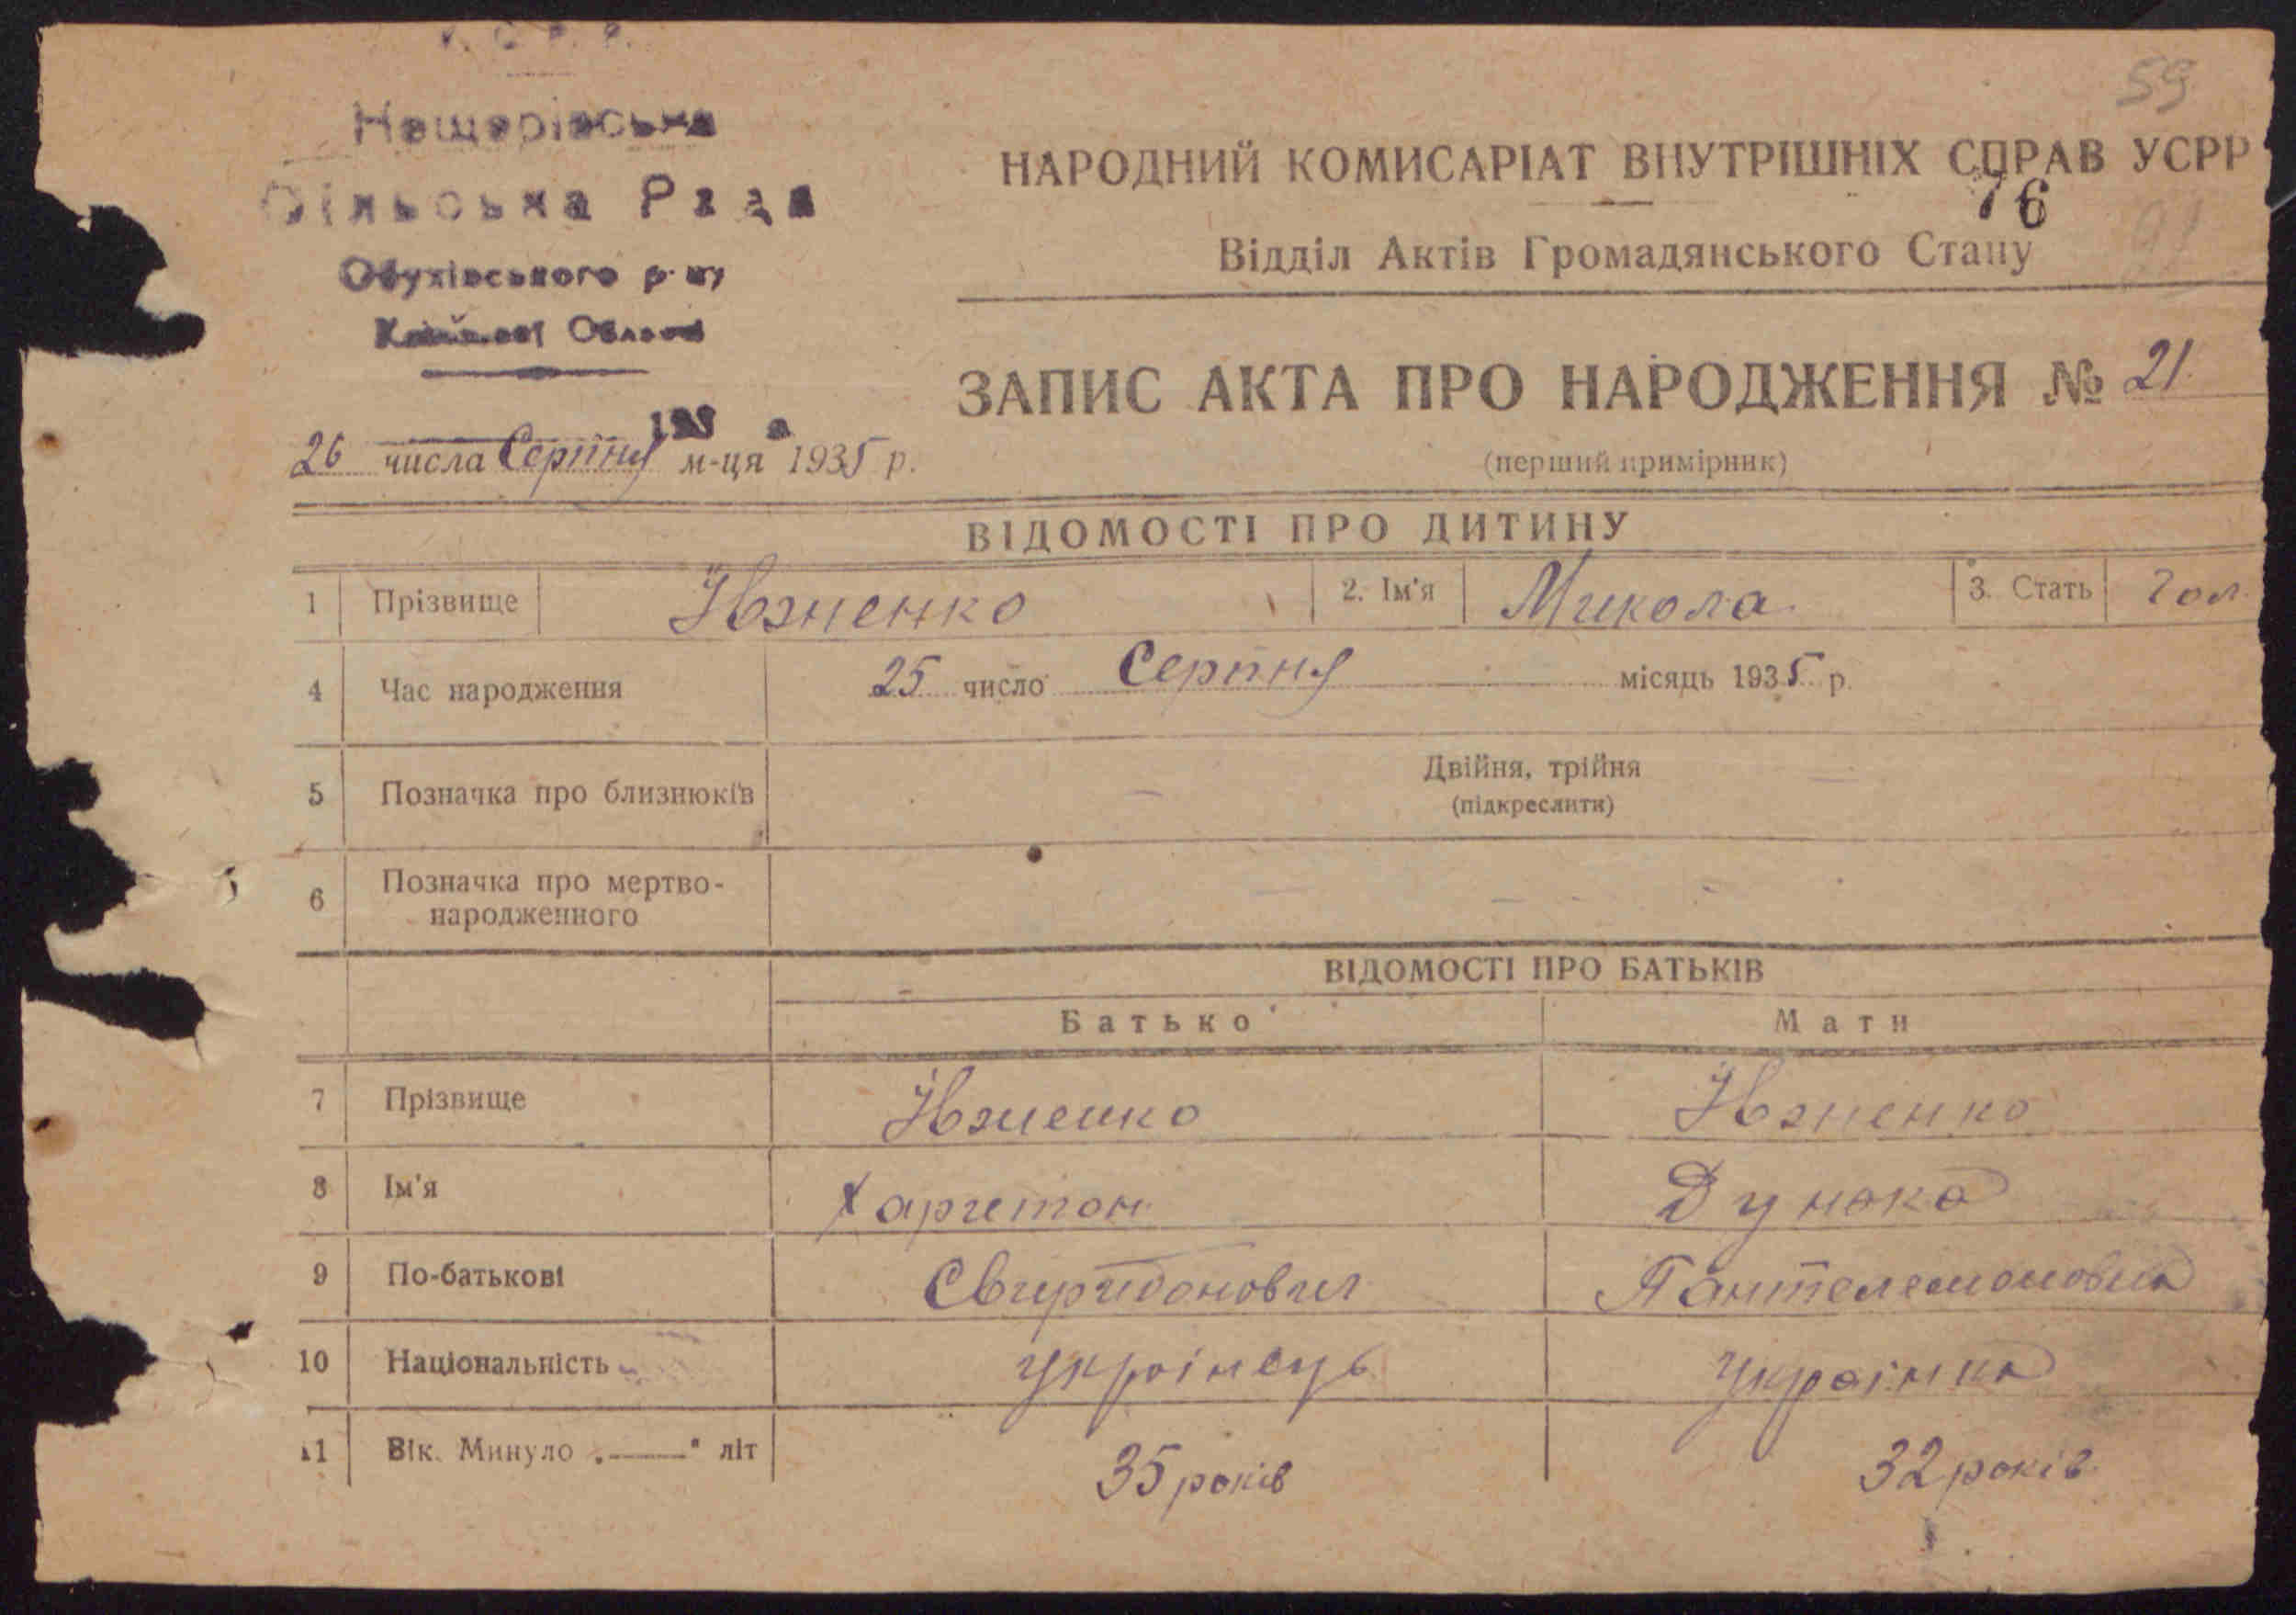 У. С. Р. Р.
59
Нещерівська
Сільська Рада
Обухівського р-ну
Київської Області
НАРОДНИЙ КОМИСАРІАТ ВНУТРІШНІХ СПРАВ УСРР
76
Відділ Актів Громадянського Стану
ЗАПИС АКТА ПРО НАРОДЖЕННЯ № 21.
(перший примірник)
193 а
26 числа Серпня м-ця 1935 р.
ВІДОМОСТІ ПРО ДИТИНУ
1 Прізвище Ївженко 2. Ім'я Микола 3. Стать Чол.
4 Час народження 25 число Серпня місяць 1935 р.
5 Позначка про близнюків Двійня, трійня
(підкреслити)
6 Позначка про мертво-
народженного
ВІДОМОСТІ ПРО БАТЬКІВ
Батько Мати
7 Прізвище Ївженко Ївженко
8 Ім'я Харетон Дунька
9 По-батькові Свиридонович Пантелемоновна
10 Національність Украінець Украінка
11 Вік. Минуло „——" літ 35 років 32 років